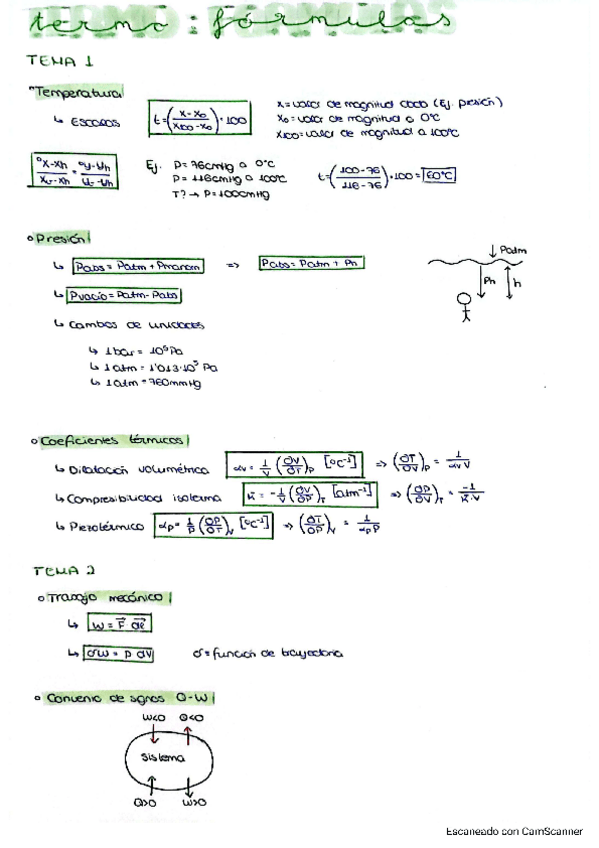 termo : fórmulas
TEMA 1
Temperatura
↳ Escalas t=(x-x₀/x₁₀₀-x₀)·100
x=valor de magnitud dada (Ej. presión)
x₀=valor de magnitud a 0ºC
x₁₀₀=valor de magnitud a 100ºC
Ej. P=76cmHg a 0ºC
P=116cmHg a 100ºC
T? → P=100cmHg
t=(100-76/116-76)·100=60ºC
Presión
↳ Pabs=Patm+Pmanom => Pabs=Patm+Ph
↳ Pvacío=Patm-Pabs
Patm
Ph
h
↳ Cambios de unidades
↳ 1bar=10⁵Pa
↳ 1atm=1'013·10⁵ Pa
↳ 1atm=760mmHg
Coeficientes térmicos
↳ Dilatación volumétrica αv=1/V (∂V/∂T)P [ºC⁻¹] => (∂T/∂V)P=1/αv V
↳ Compresibilidad isoterma K=-1/V (∂V/∂P)T [atm⁻¹] => (∂P/∂V)T=-1/K·V
↳ Piezotérmico αp=1/P (∂P/∂T)V [ºC⁻¹] => (∂T/∂P)V=1/αp P
TEMA 2
Trabajo mecánico
↳ W=F⃗ dl⃗
↳ σW=P dV σ=función de trayectoria
Convenio de signos Q-W
W<0 Q<0
Sistema
Q>0 W>0
Escaneado con CamScanner